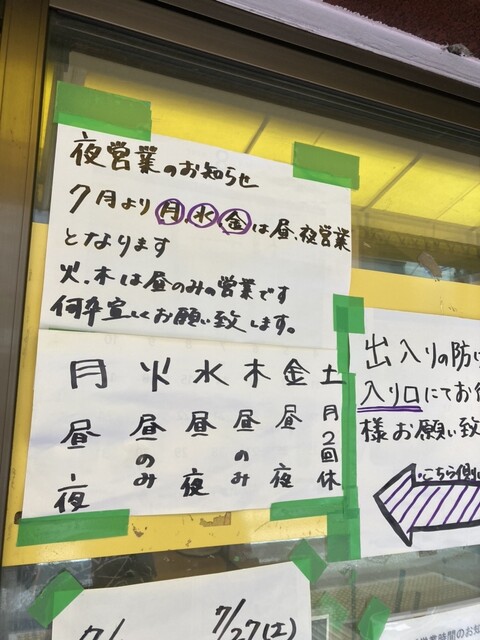 夜営業のお知らせ
7月より月、水、金は昼、夜営業
となります
火、木は昼のみの営業です
何卒宜しくお願い致します。
月 火 水 木 金 土
昼 昼のみ 昼 昼のみ 昼 月2回休
夜 夜 夜
出入りの防
入り口にてお
様お願い致
こちら側
7/
7/27(土)
営業時間のお知